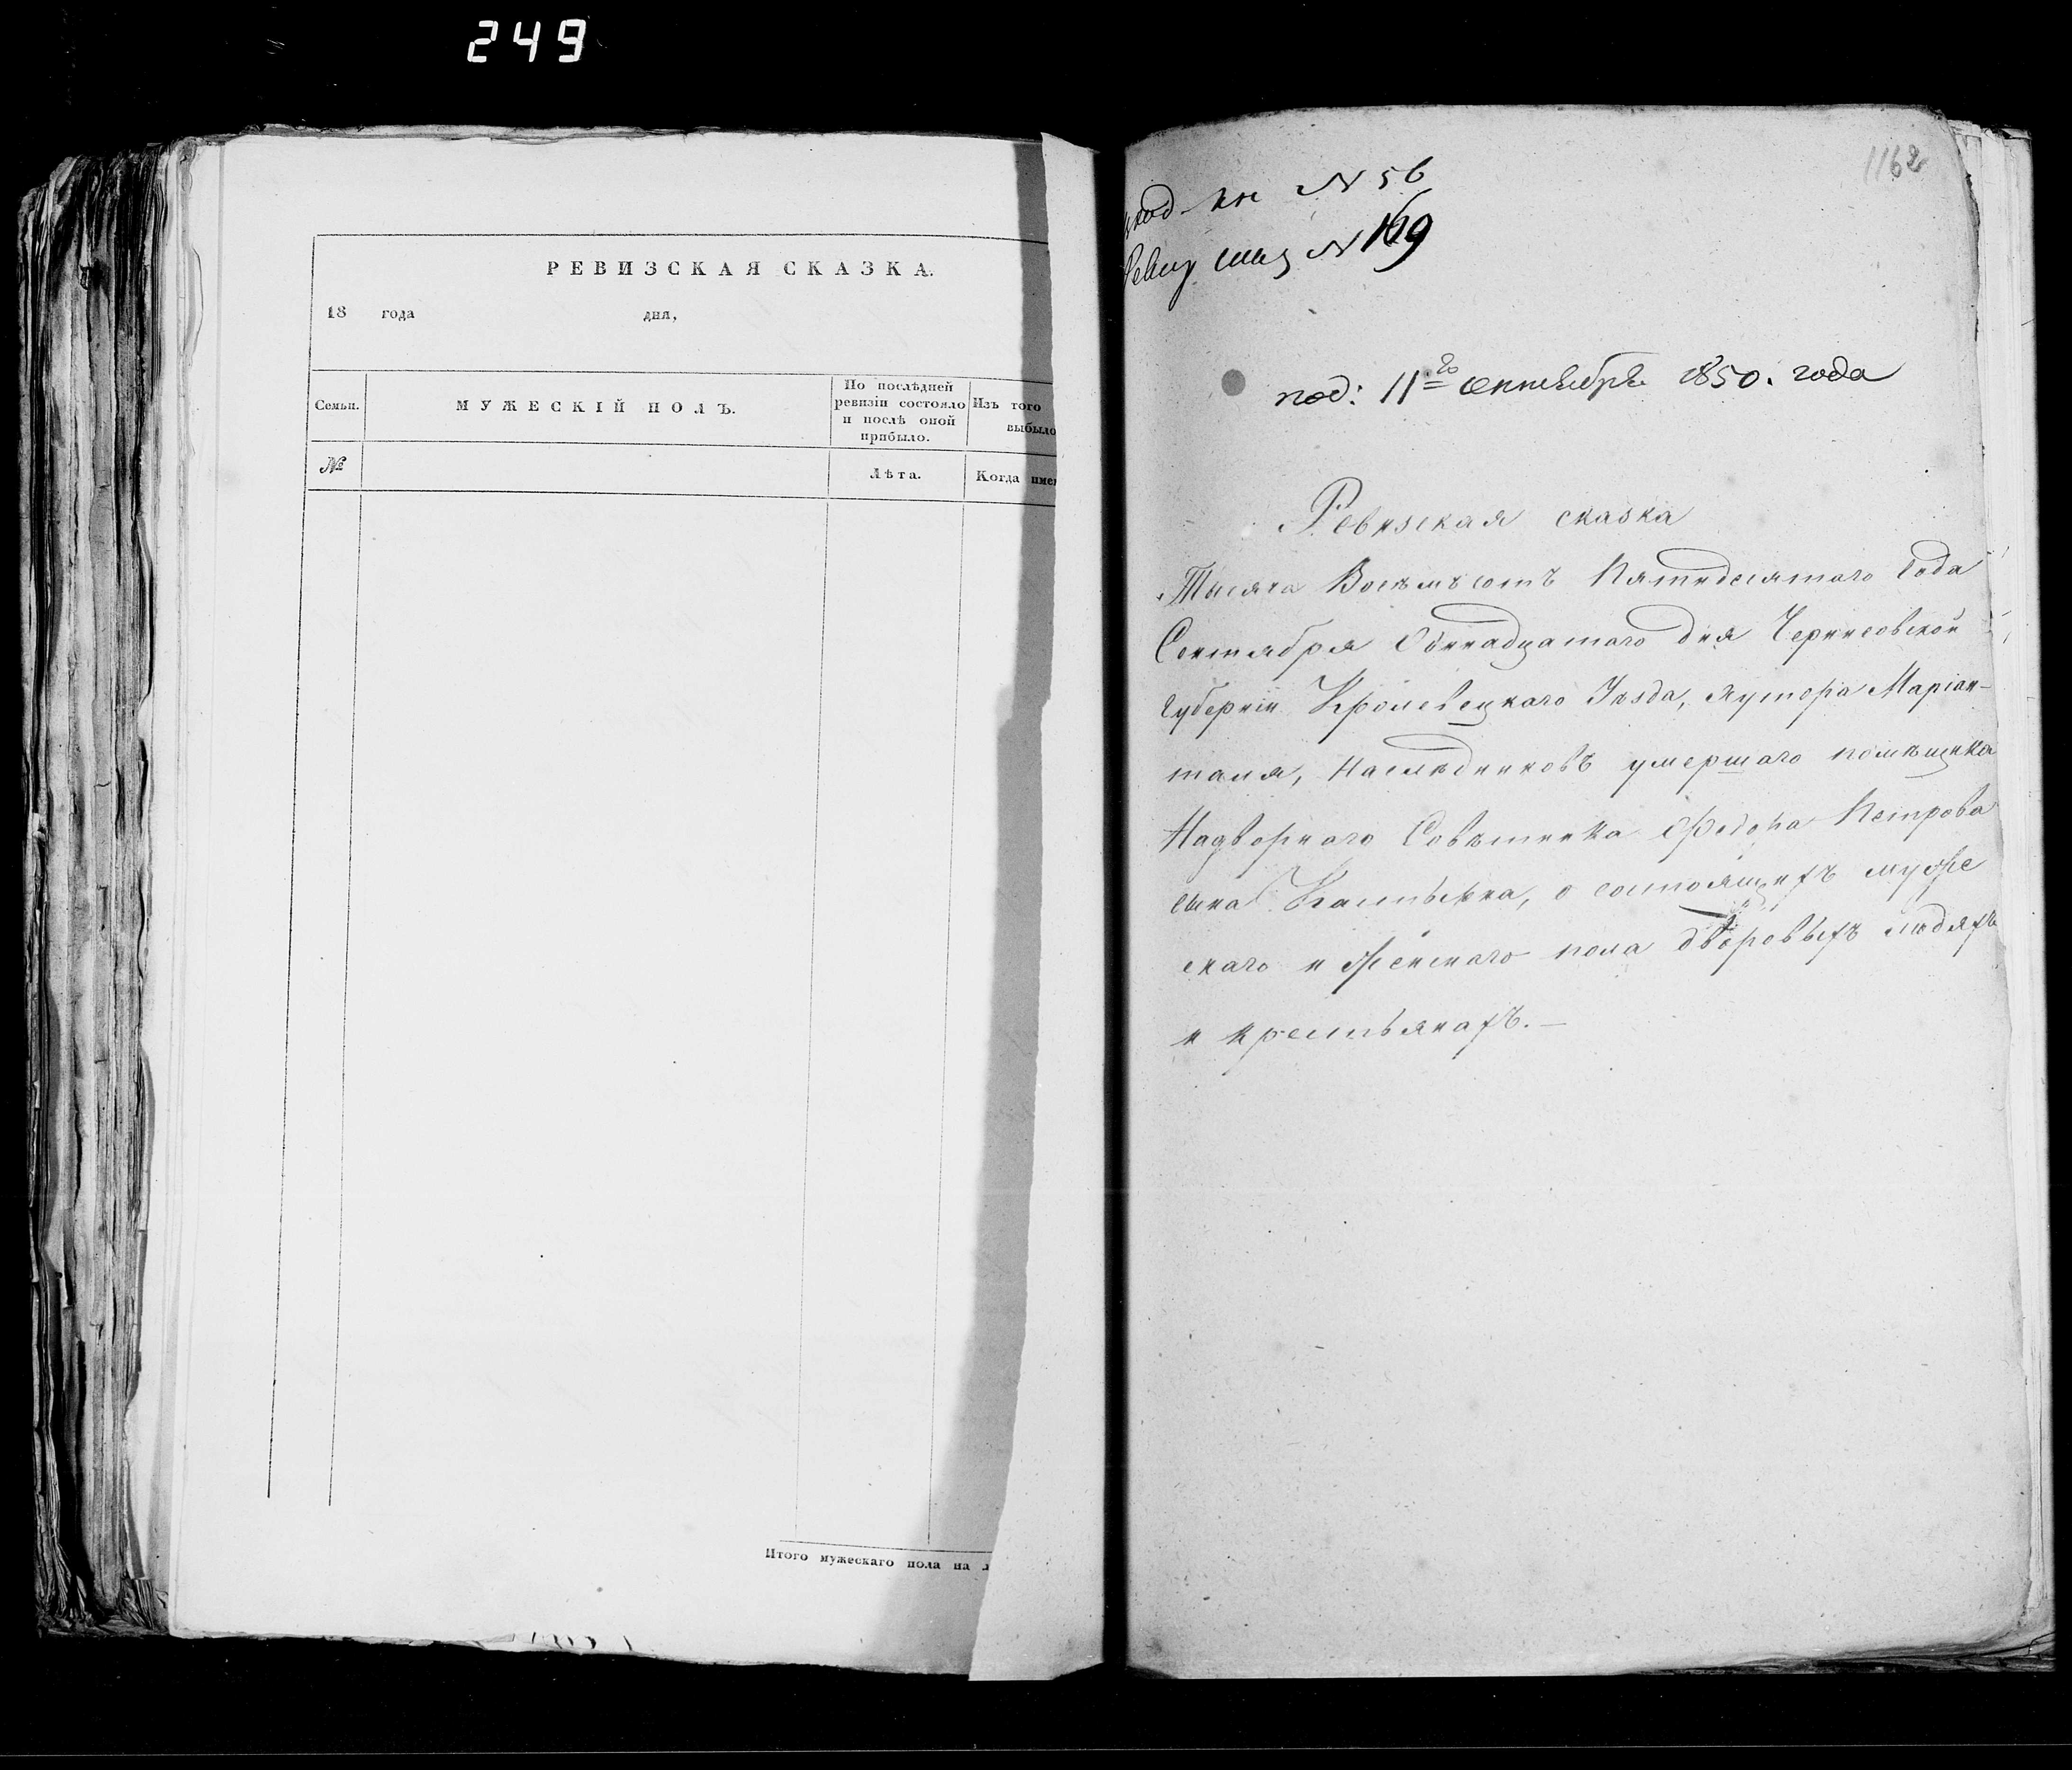 249
РЕВИЗСКАЯ СКАЗКА.
18 года дня,
Семьи.
МУЖЕСКІЙ ПОЛЪ.
По послѣдней
ревизіи состояло
и послѣ оной
прибыло.
Изъ того
выбыло
№
Лѣта.
Когда име
Итого мужескаго пола на л
1162
кн N 56
N 169
под: 11го сентября 1850. года
Ревизская сказка
Тысяча Восемьсотъ Пятидесятаго Года
Сентября Одинадцатаго дня Черниговской
Губерніи Кролевецкаго Уѣзда, хутора Маріан-
таля, Наслѣдниковъ умершаго помѣщика
Надворнаго Совѣтника Федора Петрова
сына о состоящихъ муже
скаго и женскаго пола дворовыхъ людяхъ
и крестьянахъ.—